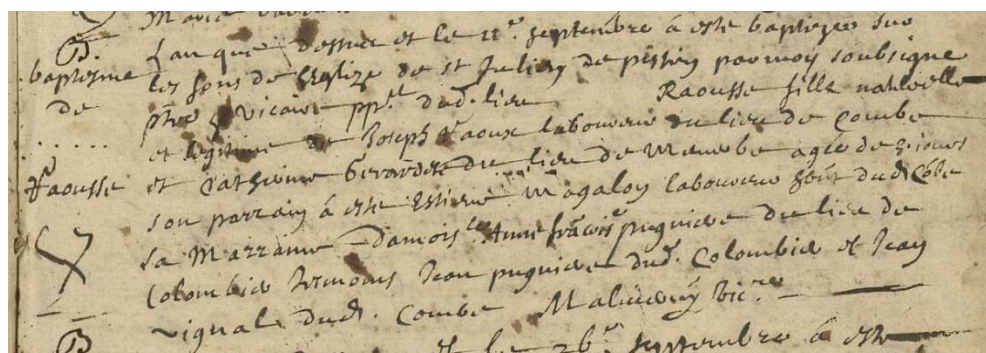 B.
baptesme
de
......
Raousse
L'an que dessus et le 11e septembre à esté baptizée sur
les fons de l'esglize de st Julien de par moy soubsigné
ptre & vicaire ppel dud. lieu Raousse fille naturelle
et legitime de Joseph Raoux laboureur du lieu de Combe
et Catherine du lieu de agée de 2 jours
son parrain à esté Estiene Magaloy laboureur dud. Cõbe
sa Marrame Damoislle Anne frãcoise puguiere du lieu de
Colombie tesmoins Jean puguiere dud. Colombie et Jean
vignal dud. Combe vicre
B
et le 26e septembre à esté